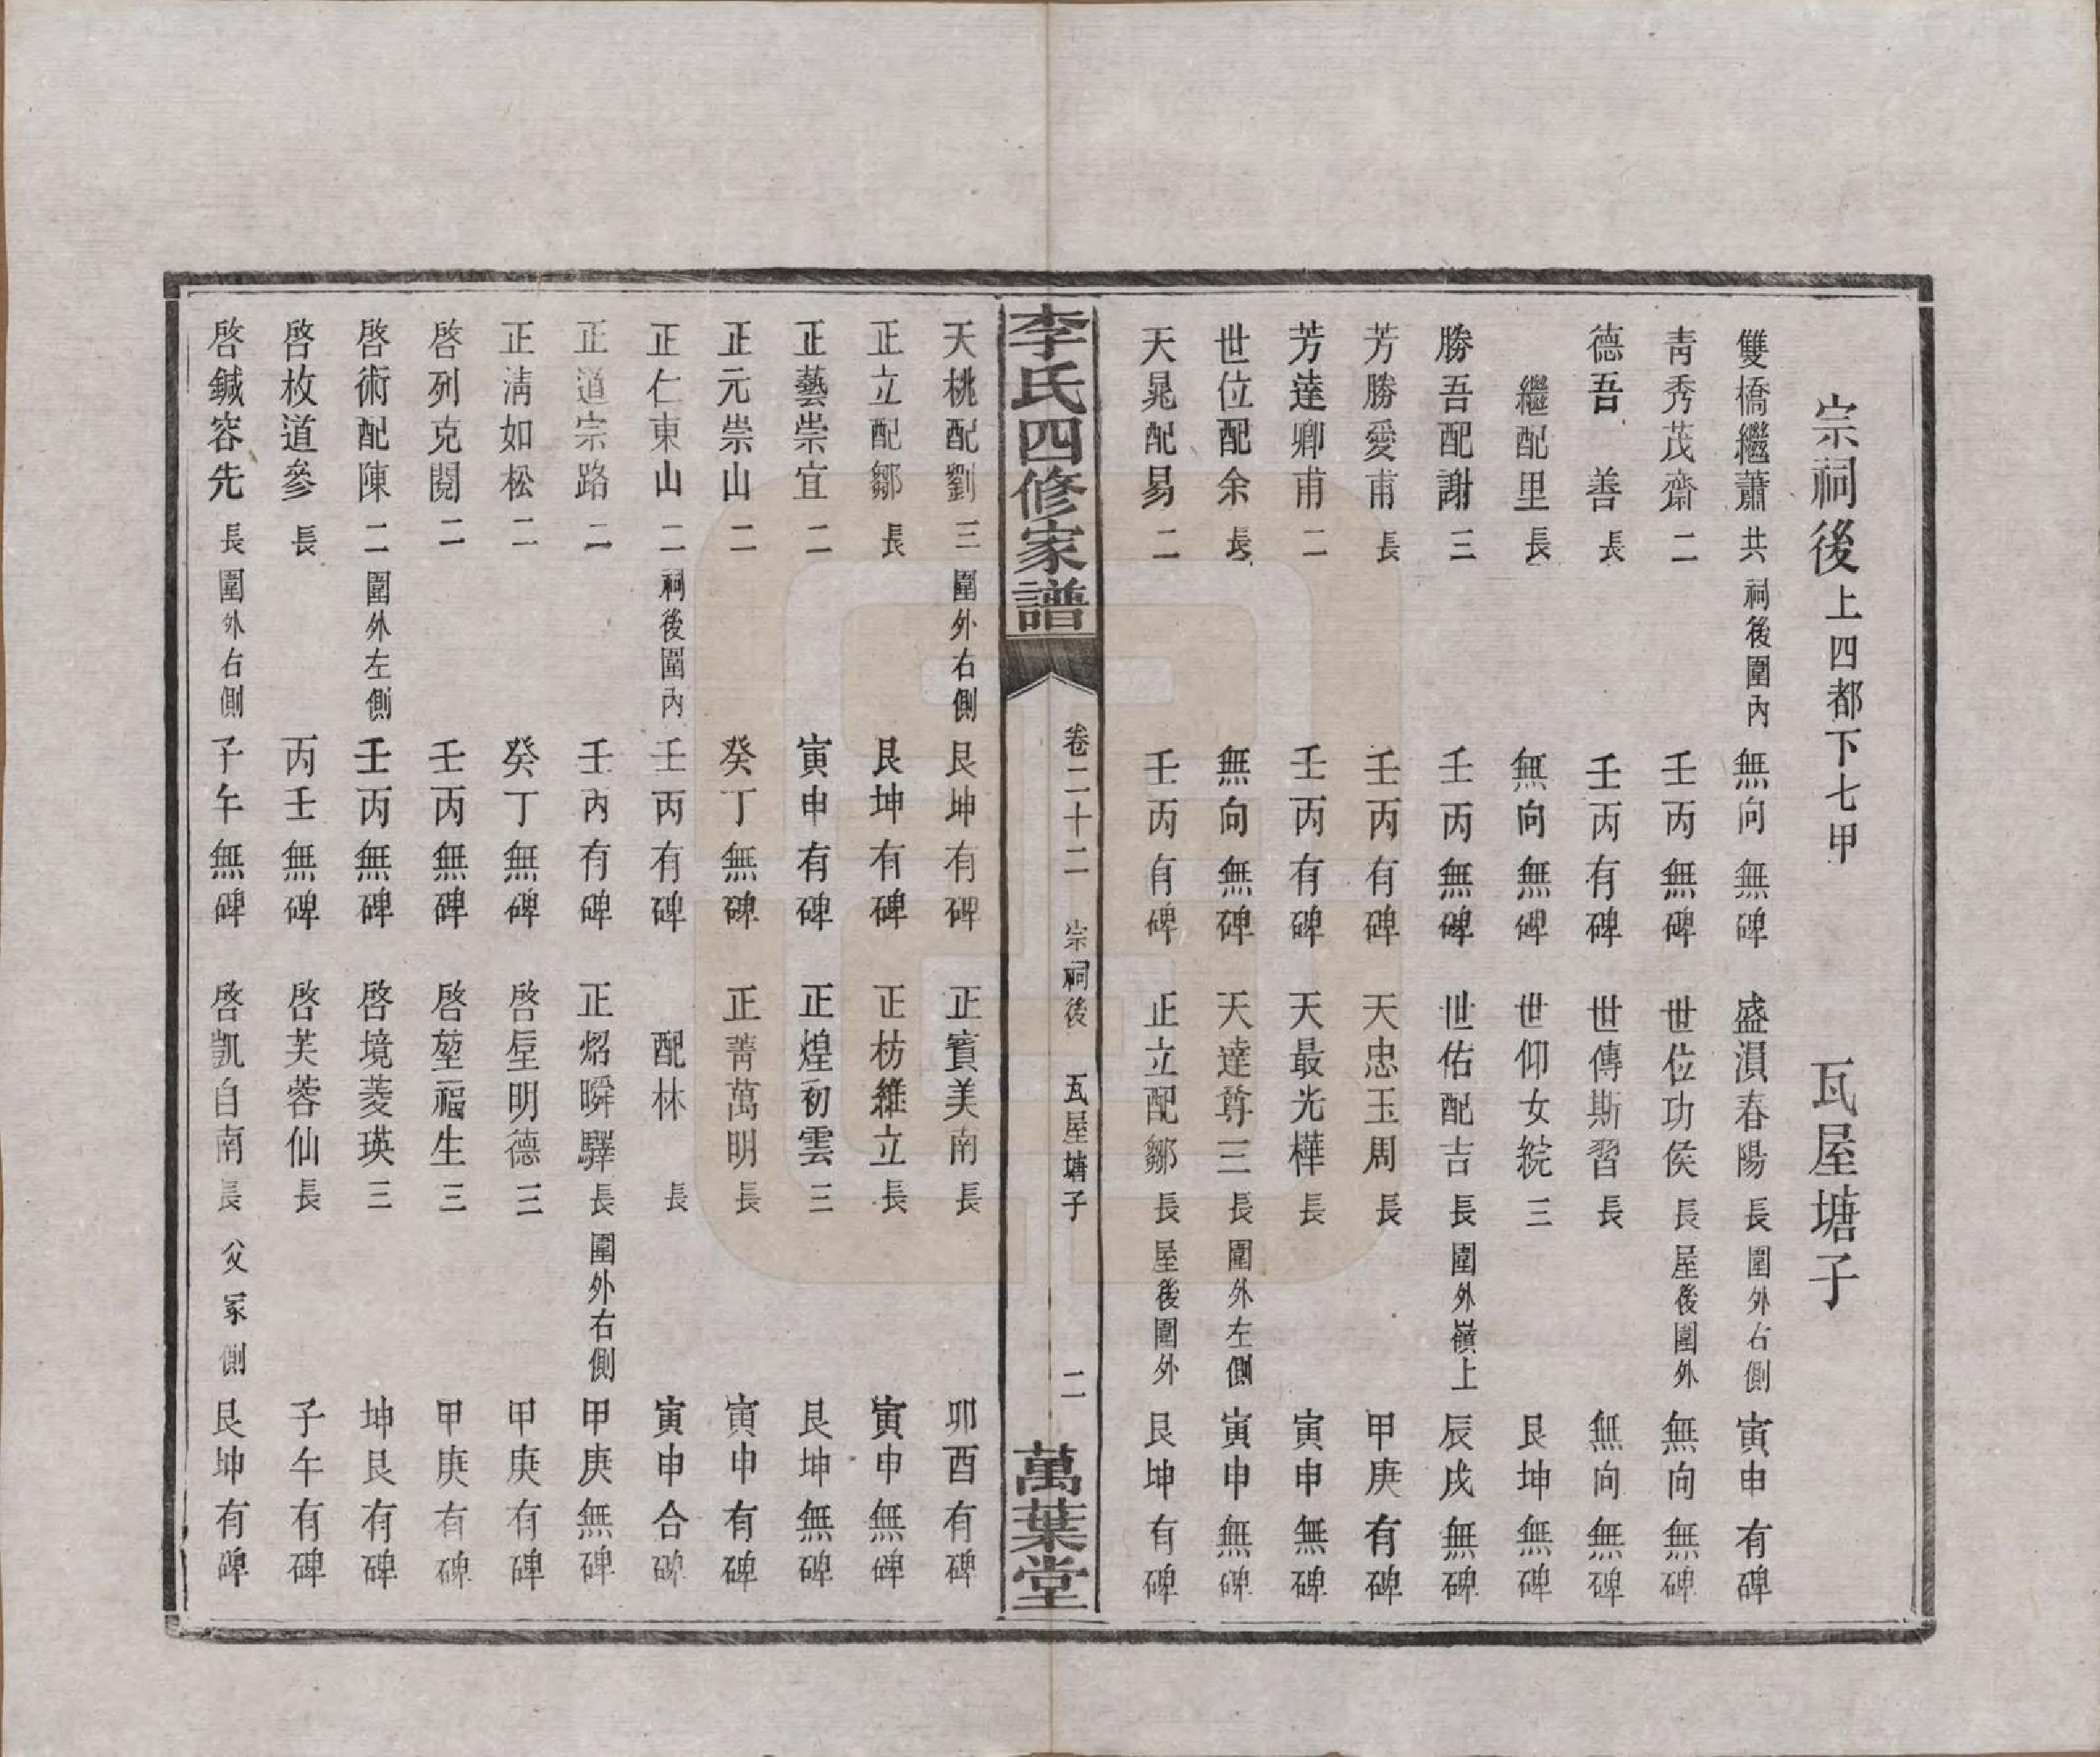 宗祠後上四都下七甲　瓦屋塘子
雙橋繼蕭共祠後圍內無向無碑　盛溳春陽長圍外右側寅申有碑
靑秀茂齋二壬丙無碑　世位功侯長屋後圍外無向無碑
德吾善長壬丙有碑　世傳斯習長無向無碑
繼配里長無向無碑　世仰女綂三艮坤無碑
勝吾配謝三壬丙無碑　世佑配吉長圍外嶺上辰戌無碑
芳勝愛甫長壬丙有碑　天忠玉周長甲庚有碑
芳達卿甫二壬丙有碑　天最光樺長寅申無碑
世位配余長無向無碑　天達尊三長圍外左側寅申無碑
天晁配易二壬丙有碑　正立配鄒長屋後圍外艮坤有碑
李氏四修家譜　卷二十二　宗祠後　瓦屋塘子　二　萬葉堂
天桃配劉三圍外右側艮坤有碑　正賓美南長卯酉有碑
正立配鄒長艮坤有碑　正枋維立長寅申無碑
正藝崇宜二寅申有碑　正煌初雲三艮坤無碑
正元崇山二癸丁無碑　正菁萬明長寅申有碑
正仁東山二祠後圍內壬丙有碑　配林長寅申合碑
正道宗路二壬丙有碑　正炤瞬驛長圍外右側甲庚無碑
正淸如松二癸丁無碑　啓㕓明德三甲庚有碑
啓列克閱二壬丙無碑　啓堃福生三甲庚有碑
啓術配陳二圍外左側壬丙無碑　啓境菱瑛三坤艮有碑
啓枚道參長丙壬無碑　啓芙蓉仙長子午有碑
啓鍼容先長圍外右側子午無碑　啓凱自南長父冢側艮坤有碑